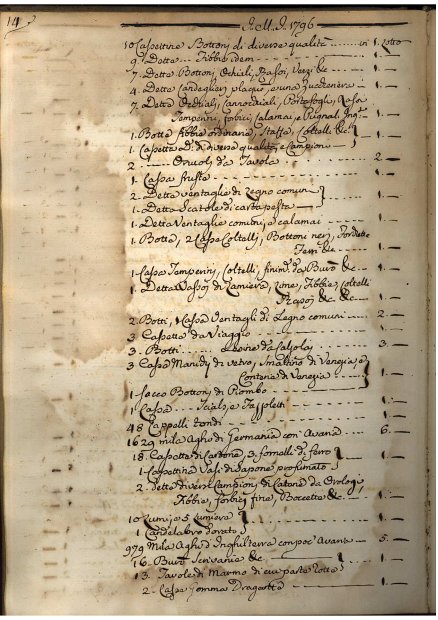 14 J. M. J. 1796
10 Cassettine Bottoni di diverse qualità in 1. Lotto
9. Dette Fibbie idem 1. —
7. Dette Bottoni, Ochiali, Rasoi, Verzi &c 1. —
4. Dette Candeglieri plaqué, e una Zuccheriera 1. —
7. Dette Occhiali, Cannocchiali, Portafogli,
Temperini, forbici, Calamai,
1. Botte fibbie ordinarie, Staffe, Coltelli &c 1. —
1. Cassetta di diversa qualità, e Campioni
2. Orivoli da Tavola 2. —
1. Cassa fruste 1. —
2. Dette Ventaglie di Legno comuni
1. Detta Scatole di carta pesta 1. —
1. Detta Ventaglie comuni, e calamai 1. —
1. Botte, 2 Casse Coltelli, Bottoni neri,
Ferri &c 1. —
1. Cassa Temperini, Coltelli, finim. da Burò &c 1. —
1. Detta Fibbie, Coltelli
&c &c 1. —
2. Botti, 1 Cassa Ventagli di Legno comuni 2. —
3 Cassette da Viaggio 1. —
3. Botti da Calzolai 3. —
3 Cassa di vetro, Smaltino di Venezia, e
Conteria di Venezia 1. —
1. Sacco Bottoni di Piombo 1. —
1 Cassa Scialò, e Fazzoletti 1. —
48 Cappelli tondi 1. —
1629 mila Aghi di Germania con Avaria 6. —
18. Cassette di Carbone, 3. fornelli di ferro
1. Cassettina Vasi di Sapone profumato 1. —
2. Dette diversi Campioni di Catene da Orologi,
Fibbie, forbici fine, Boccette &c 1. —
10 Lumi, e 5 Lumiere
1 Candelabro dorato 1. —
979 Mila Aghi d'Inghilterra con poc' Avaria 5. —
16. Burò Scrivanie &c 1. —
13. Tavole di Marmo di cui parte Rotte
2. Casse Gomma Dragante 1. —